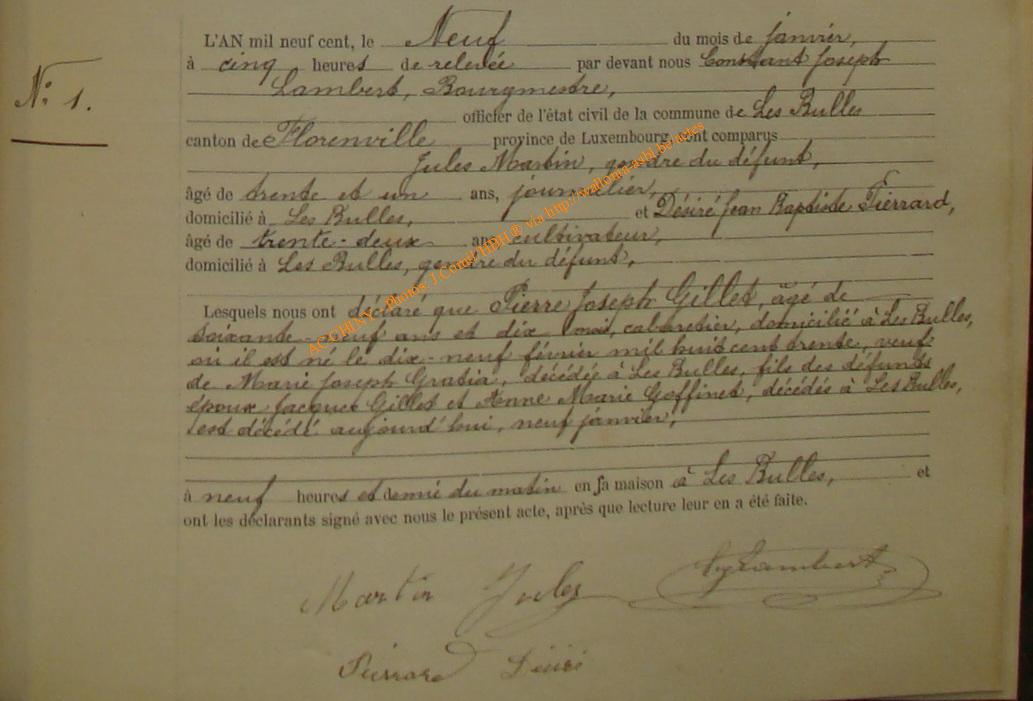 L'AN mil neuf cent, le Neuf du mois de janvier,
à cinq heures de relevée par devant nous Constant Joseph
N° 1.
Lambert, Bourgmestre,
officier de l'état civil de la commune de Les Bulles
canton de Florenville province de Luxembourg, sont comparus
Jules Martin, gendre du défunt,
âgé de trente et un ans, journalier,
domicilié à Les Bulles, et Désiré Jean Baptiste Pierrard,
âgé de trente-deux ans cultivateur,
domicilié à Les Bulles, gendre du défunt,
Lesquels nous ont déclaré que Pierre Joseph Gillet, âgé de
soixante-neuf ans et dix mois, cabaretier, domicilié à Les Bulles,
où il est né le dix-neuf février mil huit cent trente, veuf
de Marie Joseph Gratia, décédée à Les Bulles, fils des défunts
époux Jacques Gillet et Anne Marie Goffinet, décédés à Les Bulles,
est décédé aujourd'hui, neuf janvier,
à neuf heures et demie du matin en sa maison à Les Bulles, et
ont les déclarants signé avec nous le présent acte, après que lecture leur en a été faite.
Martin Jules Lambert
Pierrard Désiré
via http://wallonia-asbl.be/actes